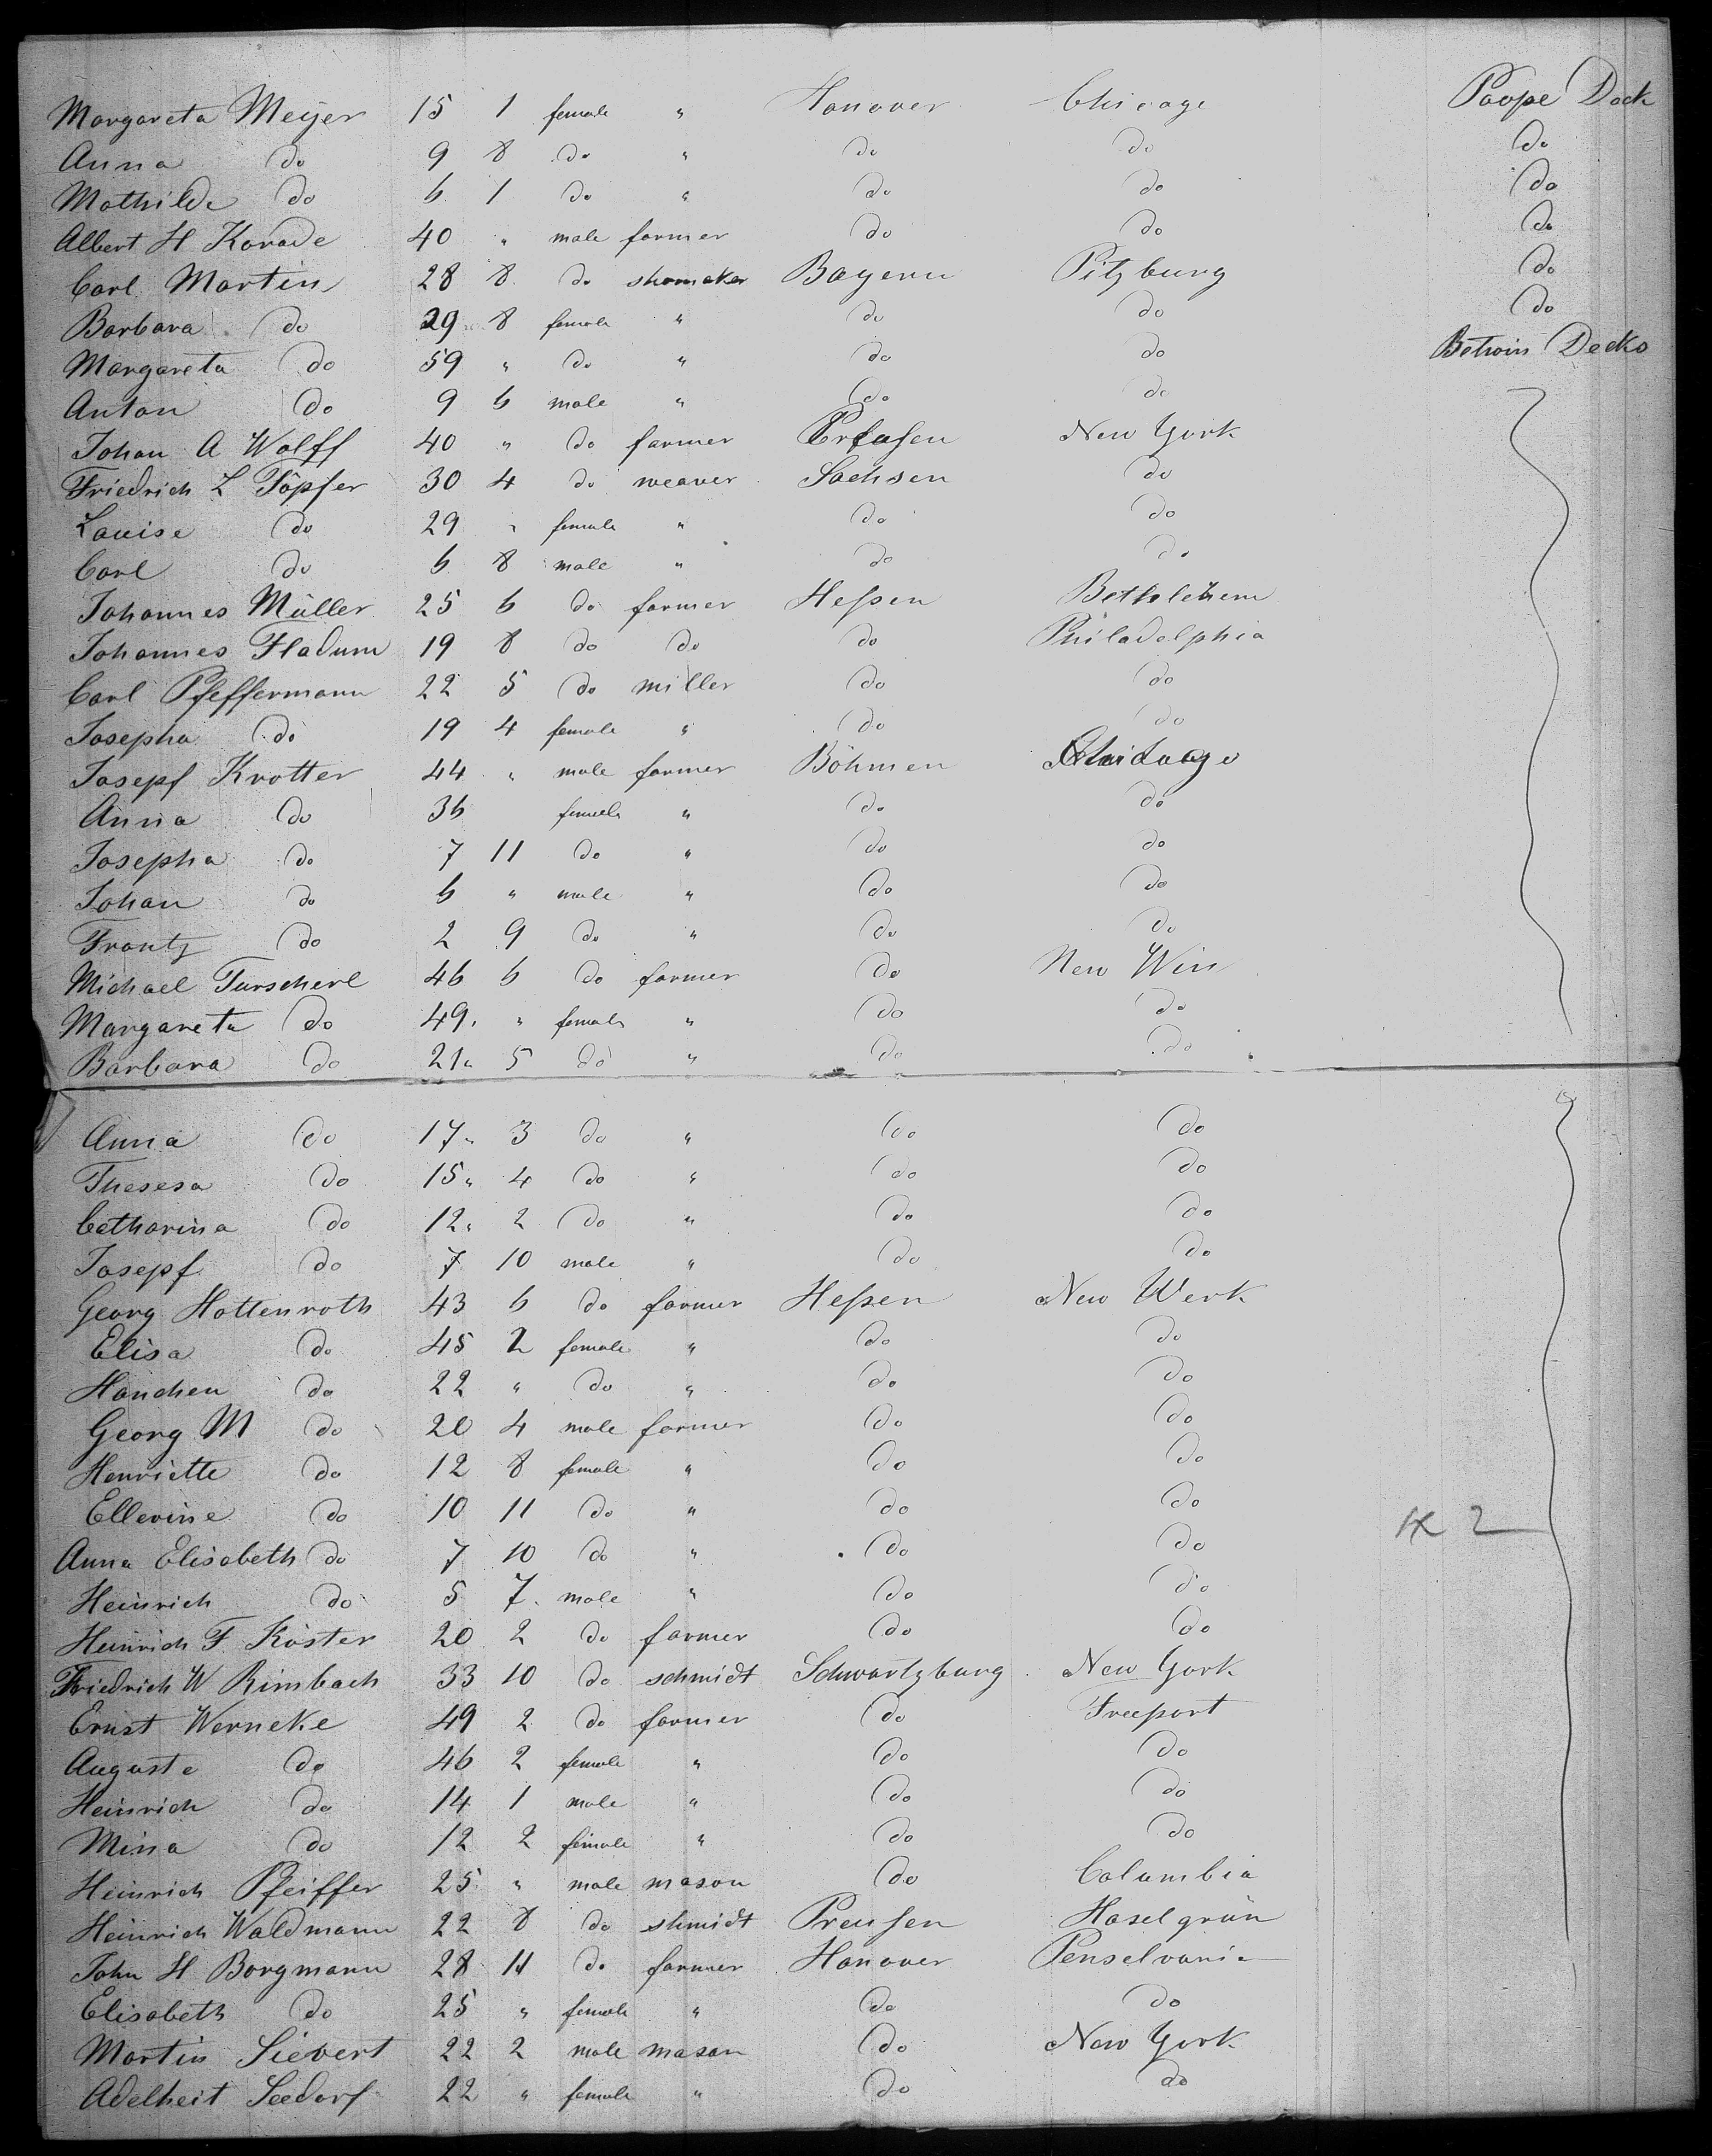 Margareta Meyer 15 1 female " Hanover Chicago Poope Deck
Anna do 9 8 do " do do do
Mathilde do 6 1 do " do do do
Albert H Korade 40 " male farmer do do do
Carl Martin 28 8 do shomaker Bayern Pitzburg do
Barbara do 29 8 female " do do do
Margareta do 59 " do " do do Betwin Decks
Anton do 9 6 male " do do
Johan A Wolff 40 " do farmer Preusen New York
Friedrich L Töpfer 30 4 do weaver Sachsen do
Louise do 29 " female " do do
Carl do 6 8 male " do do
Johannes Müller 25 6 do farmer Heßen Bethlehem
Johannes Fladum 19 8 do do do Philadelphia
Carl Pfeffermann 22 5 do miller do do
Josepha do 19 4 female " do do
Josepf Krotter 44 " male farmer Böhmen Chicago
Anna do 36 female " do do
Josepha do 7 11 do " do do
Johan do 6 " male " do do
Frantz do 2 9 do " do do
Michael Turscherl 46 6 do farmer do New Win
Margareta do 49 " female " do do
Barbara do 21 " 5 do " do do
Anna do 17 " 3 do " do do
Thesesa do 15 " 4 do " do do
Catharina do 12 " 2 do " do do
Josepf do 7 10 male " do do
Georg Hottenroth 43 6 do farmer Heßen New Werk
Elisa do 45 2 female " do do
Hanchen do 22 " do " do do
Georg M do 20 4 male farmer do do
Henriette do 12 8 female " do do
Ellevine do 10 11 do " do do
Anna Elisabeth do 7 10 do " do do
Heinrich do 5 7 male " do do
Heinrich F Köster 20 2 do farmer do do
Friedrich W Rimbach 33 10 do schmidt Schwartzburg New York
Ernst Werneke 49 2 do farmer do Freeport
Auguste do 46 2 female " do do
Heinrich do 14 1 male " do do
Mina do 12 2 female " do do
Heinrich Pfeiffer 25 " male mason do Columbia
Heinrich Waldmann 22 8 do shmidt Preusen Hoselgrün
John H Borgmann 28 11 do farmer Hanover Penselvania
Elisabeth do 25 " female " do do
Martin Sievert 22 2 male mason do New York
Adelheit Seedorf 22 " female " do do